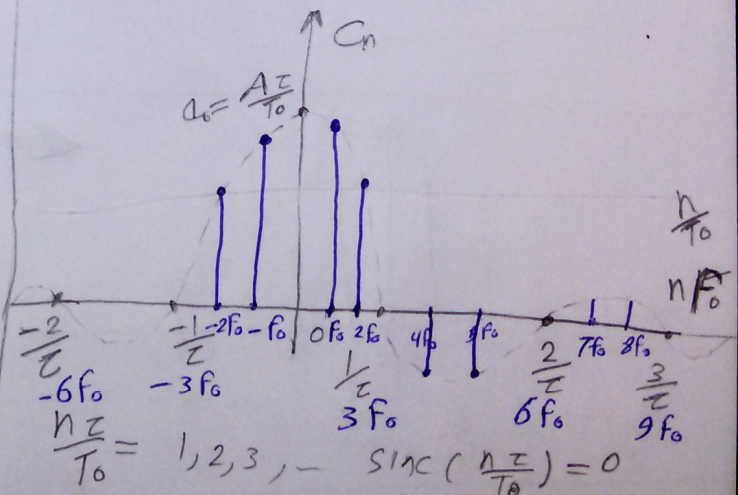 Cn
a₀ = Aτ/T₀
n/T₀
nf₀
-2/τ -1/τ -2f₀ -f₀ 0 f₀ 2f₀ 1/τ 4f₀ f₀ 2/τ 7f₀ 8f₀ 3/τ
-6f₀ -3f₀ 3f₀ 6f₀ 9f₀
nτ/T₀ = 1, 2, 3, – sinc(nτ/T₀) = 0